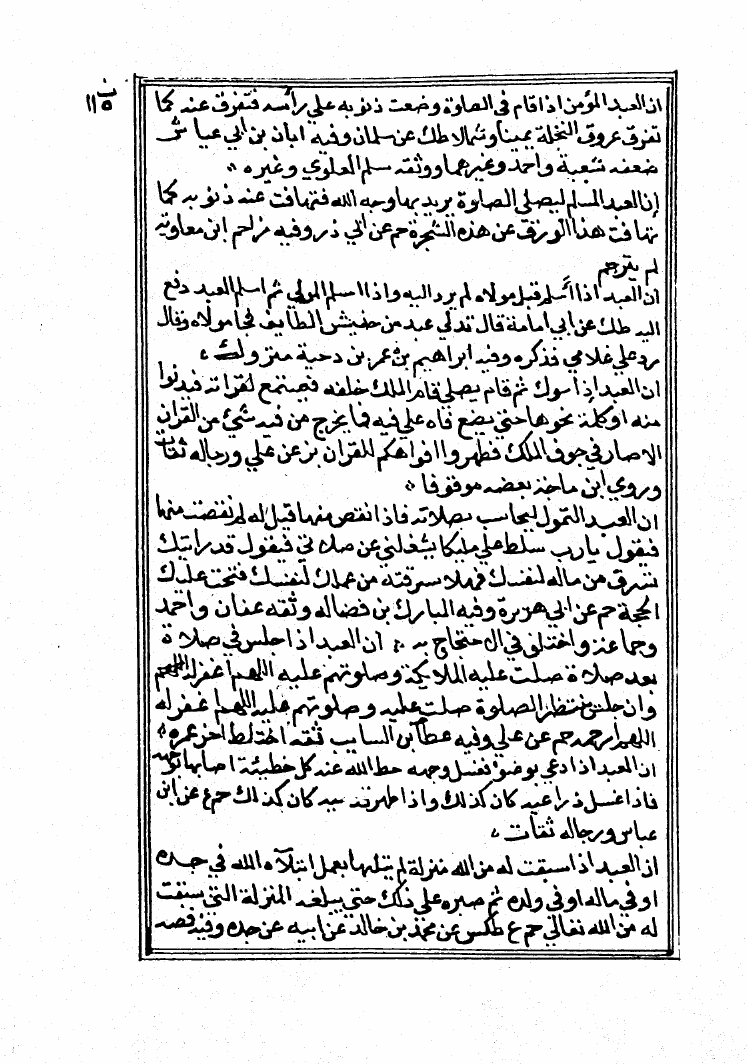 ١١٥ ب
ان العبد المؤمن اذا قام في الصلوة وضعت ذنوبه علي رأسه فتفرق عنه كما
تفرق عروق النخلة يمينا وشمالا طك عن سلمان وفيه ابان بن ابي عياش
ضعفه شعبة واحمد وغيرهما ووثقه سلم العلوي وغيره
إن العبد المسلم ليصلي الصلوة يريد بها وجه الله فتهافت عنه ذنوبه كما
تهافت هذا الورق عن هذه الشجرة حم عن ابي ذر وفيه مزاحم ابن معاوية
لم يترجم
ان العبد اذا أسلم قبل مولاه لم يرد اليه واذا اسلم المولي ثم اسلم العبد دفع
اليه طك عن ابي امامة قال تدلي عبد من حفيش الطايف فجا مولاه وقال
رد علي غلامي فذكره وفيه ابراهيم بن عمر بن دحية متروك
ان العبد إذا تسوك ثم قام يصلي قام الملك خلفه فيستمع لقراته فيدنوا
منه او كلمة نحوها حتي يضع فاه علي فيه فما يخرج من فيه شيء من القران
الا صار في جوف الملك فطهروا افواهكم للقران بز عن علي ورجاله ثقات
وروي ابن ماجة بعضه موقوفا
ان العبد المملوك ليحاسب بصلاته فاذا انقص منها قيل له لم نقصت منها
فيقول يا رب سلط علي مليكا يشغلني عن صلاتي فيقول قد رايتك
تسرق من ماله لنفسك فهلا سرقت من عملك لنفسك فتجب عليك
الحجة حم عن ابي هريرة وفيه المبارك بن فضالة وثقه عفان واحمد
وجماعة واختلف في الاحتجاج به ان العبد اذا جلس في صلاة
بعد صلاة صلت عليه الملايكة وصلوتهم عليه اللهم اغفر له اللهم
وان جلس ينتظر الصلوة صلت عليه وصلوتهم عليه اللهم اغفر له
اللهم ارحمه حم عن علي وفيه عطا بن السايب ثقة اختلط اخر عمره
ان العبد اذا دعي بوضوء فغسل وجهه حط الله عنه كل خطيئة اصابها بوجهه
فاذا غسل ذراعيه كان كذلك واذا طهر قدميه كان كذلك حم ع عن ابن
عباس ورجاله ثقات
ان العبد اذا سبقت له من الله منزلة لم يبلغها بعمل ابتلاه الله في جسده
او في ماله او في ولده ثم صبره علي ذلك حتي يبلغه المنزلة التي سبقت
له من الله تعالي حم ع طكس عن محمد بن خالد عن ابيه عن جده وفيه قصة